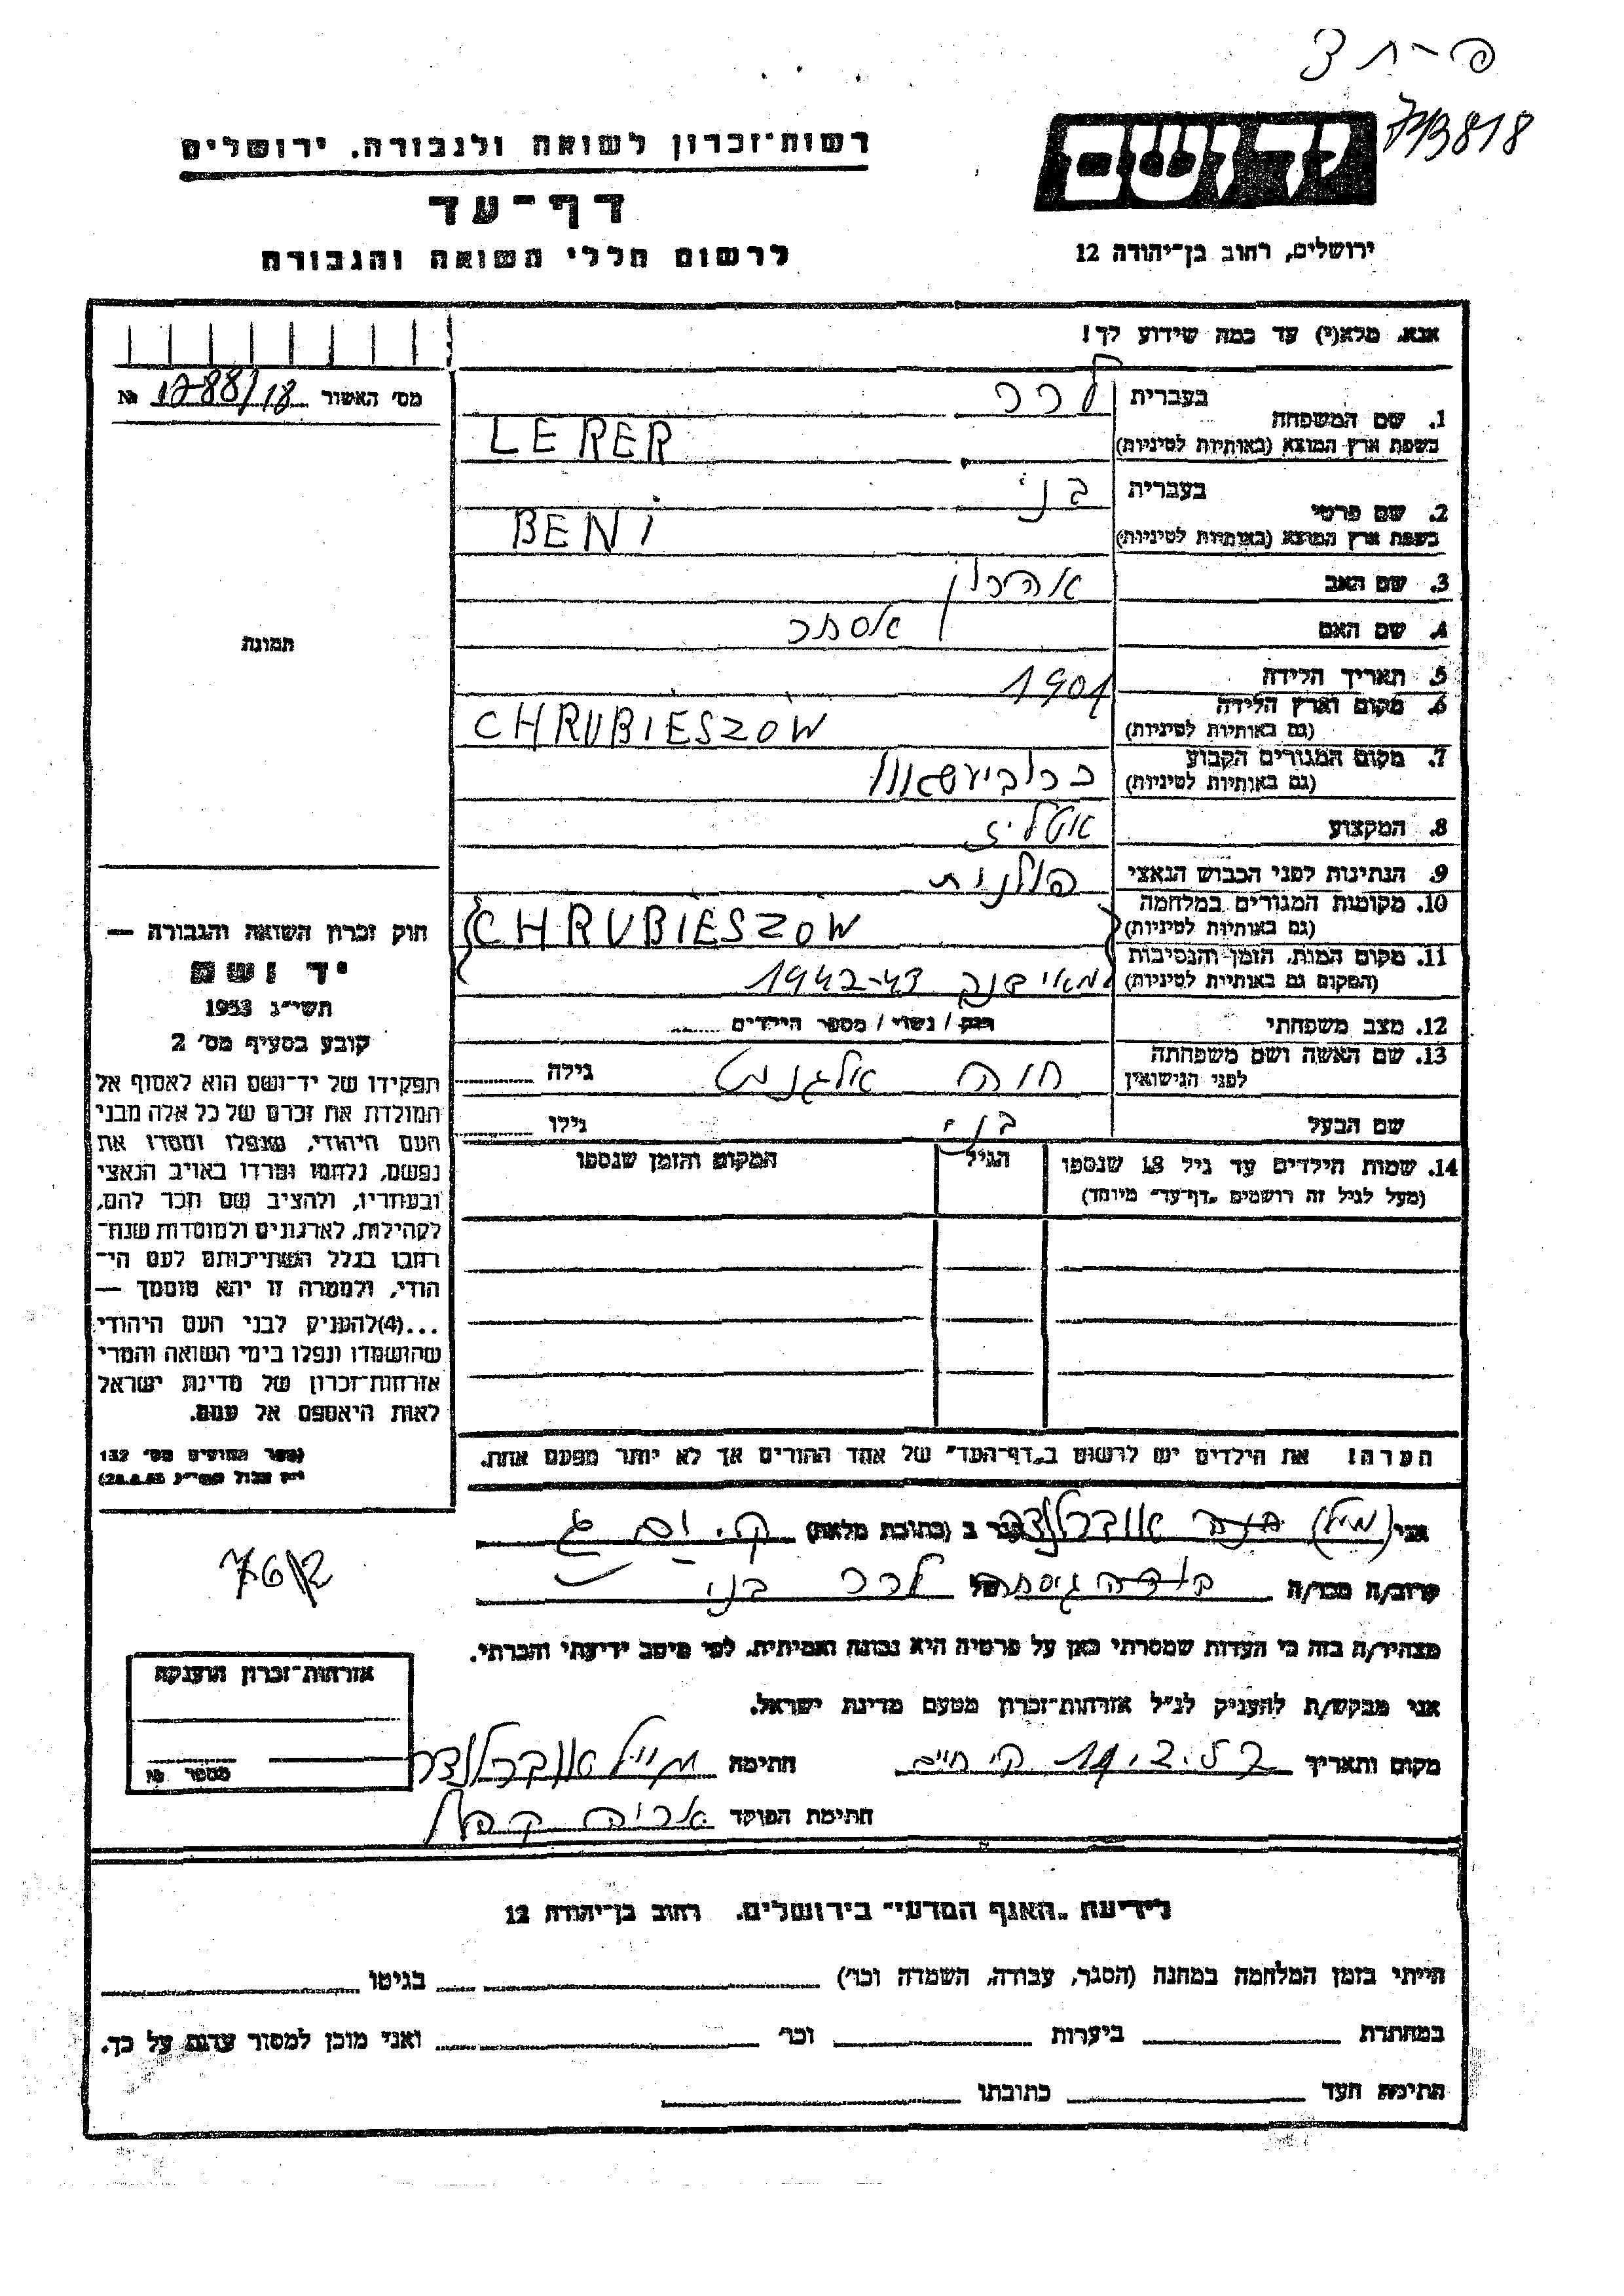 743818
יד ושם
רשות־זכרון לשואה ולגבורה, ירושלים
דף־עד
לרשום חללי השואה והגבורה
ירושלים, רחוב בן־יהודה 12
אנא, מלא(י) עד כמה שידוע לך!
מס׳ האשור № 1288/18
1. שם המשפחה
בעברית לרר
בשפת ארץ המוצא (באותיות לטיניות) LERER
2. שם פרטי
בעברית בני
בשפת ארץ המוצא (באותיות לטיניות) BENI
3. שם האב אהרון
4. שם האם אסתר
5. תאריך הלידה 1901
6. מקום וארץ הלידה
(גם באותיות לטיניות) CHRUBIESZOW
7. מקום המגורים הקבוע
(גם באותיות לטיניות)
8. המקצוע
9. הנתינות לפני הכבוש הנאצי פולנית
10. מקומות המגורים במלחמה
(גם באותיות לטיניות) CHRUBIESZOW
11. מקום המות, הזמן והנסיבות
(המקום גם באותיות לטיניות) 1942-43
12. מצב משפחתי רוק / נשוי / מספר הילדים
13. שם האשה ושם משפחתה
לפני הנישואין חוה גילה
שם הבעל בני גילו
14. שמות הילדים עד גיל 18 שנספו הגיל המקום והזמן שנספו
(מעל לגיל זה רושמים „דף־עד״ מיוחד)
הערה! את הילדים יש לרשום ב„דף־העד״ של אחד ההורים אך לא יותר מפעם אחת.
תמונה
חוק זכרון השואה והגבורה —
יד ושם
תשי״ג 1953
קובע בסעיף מס׳ 2
תפקידו של יד־ושם הוא לאסוף אל
המולדת את זכרם של כל אלה מבני
העם היהודי, שנפלו ומסרו את
נפשם, נלחמו ומרדו באויב הנאצי
ובעוזריו, ולהציב שם וזכר להם,
לקהילות, לארגונים ולמוסדות שנח־
רבו בגלל השתייכותם לעם הי־
הודי, ולמטרה זו יהא מוסמך —
...(4)להעניק לבני העם היהודי
שהושמדו ונפלו בימי השואה והמרי
אזרחות־זכרון של מדינת ישראל
לאות היאספם אל עמם.
(ספר החוקים מס׳ 132
אני גר ב (כתובת מלאה)
קרוב/ה מכר/ה של לרר בני
מצהיר/ה בזה כי העדות שמסרתי כאן על פרטיה היא נכונה ואמיתית, לפי מיטב ידיעתי והכרתי.
אני מבקש/ת להעניק לנ״ל אזרחות־זכרון מטעם מדינת ישראל.
מקום ותאריך חתימה
חתימת הפוקד
אזרחות־זכרון הוענקה
מספר №
לידיעת „האגף המדעי״ בירושלים, רחוב בן־יהודה 12
הייתי בזמן המלחמה במחנה (הסגר, עבודה, השמדה וכו׳) בגיטו
במחתרת ביערות וכו׳ ואני מוכן למסור עדות על כך.
חתימת העד כתובתו